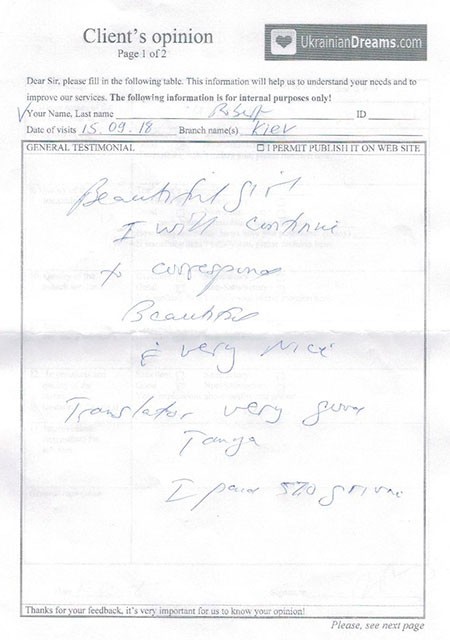 Client's opinion
Page 1 of 2
UkrainianDreams.com
Dear Sir, please fill in the following table. This information will help us to understand your needs and to
improve our services. The following information is for internal purposes only!
Your Name, Last name Robert ID
Date of visits 15.09.18 Branch name(s) Kiev
GENERAL TESTIMONIAL I PERMIT PUBLISH IT ON WEB SITE
Beautiful girl
I will continue
to correspond
Beautiful
& very nice
Translator very good
Tanya
I paid 570
Thanks for your feedback, it's very important for us to know your opinion!
Please, see next page